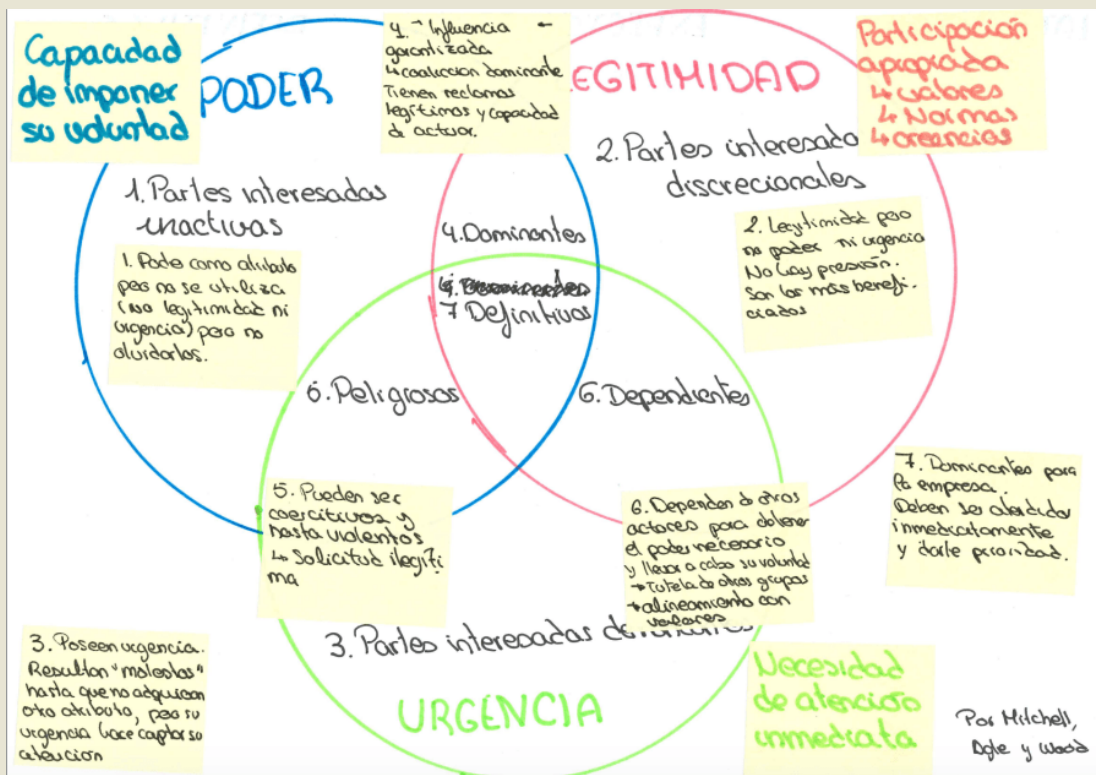 Capacidad
de imponer
su voluntad
PODER
4. → Influencia
garantizada
↳ coalición dominante
Tienen reclamos
legítimos y capacidad
de actuar.
EGITIMIDAD
Participación
apropiada
↳ valores
↳ Normas
↳ creencias
1. Partes interesadas
inactivas
1. Poder como atributo
pero no se utiliza
(no legitimidad ni
urgencia) pero no
olvidarlos.
2. Partes interesado
discrecionales
2. Legitimidad pero
no poder ni urgencia
No hay presión.
Son los más benefi-
ciados
4. Dominantes
7 Definitivos
5. Peligrosos
6. Dependientes
5. Pueden ser
coercitivos y
hasta violentos
↳ Solicitud ilegíti
ma
6. Dependen de otros
actores para obtener
el poder necesario
y llevar a cabo su voluntad
→ Tutela de otros grupos
→ alineamiento con
valores
7. Dominantes para
la empresa.
Deben ser atendidos
inmediatamente
y darle prioridad.
3. Partes interesadas
URGENCIA
3. Poseen urgencia.
Resultan "molestos"
hasta que no adquieran
otro atributo, pero su
urgencia hace captar su
atención
Necesidad
de atención
inmediata
Por Mitchell,
Agle y Wood